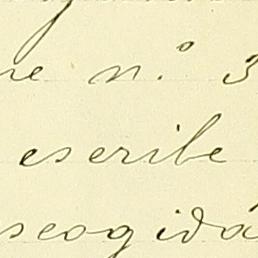 ne n.° 3
escribe
scogidá